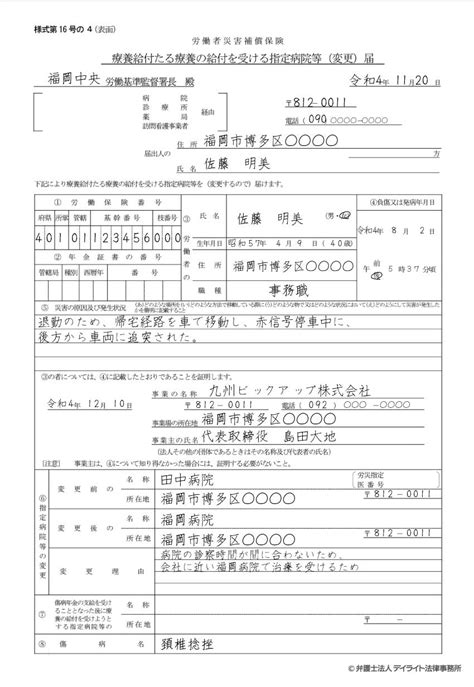 様式第16号の4(表面)
労働者災害補償保険
療養給付たる療養の給付を受ける指定病院等(変更)届
福岡中央 労働基準監督署長 殿
令和4年 11月20日
病院
診療所
薬局
訪問看護事業者
経由
〒812-0011
電話(090 〇〇〇〇-〇〇〇〇
届出人の
住所 福岡市博多区〇〇〇〇
氏名 佐藤 明美
下記により療養給付たる療養の給付を受ける指定病院等を(変更するので)届けます。
① 労働保険番号
府県 所掌 管轄 基幹番号 枝番号
40101123456000
② 年金証書の番号
管轄局 種別 西暦年 番号
③
労働者の
氏名 佐藤 明美 (男・女)
生年月日 昭和57年 4月 9日(40歳)
住所 福岡市博多区〇〇〇〇
職種 事務職
④負傷又は発病年月日
令和4年 8月 2日
午 前 後 5時37分頃
⑤ 災害の原因及び発生状況
退勤のため、帰宅経路を車で移動し、赤信号停車中に、
後方から車両に追突された。
③の者については、④に記載したとおりであることを証明します。
事業の名称 九州ビックアップ株式会社
令和4年 12月10日
〒812-0011 電話(092)〇〇〇-〇〇〇〇
事業場の所在地 福岡市博多区〇〇〇〇
事業主の氏名 代表取締役 島田大地
(法人その他の団体であるときはその名称及び代表者の氏名)
[注意] 事業主は、④について知り得なかった場合には、証明する必要がないこと。
⑥指定病院等の変更
変更前の
名称 田中病院
労災指定
医番号
所在地 福岡市博多区〇〇〇〇 〒812-0011
変更後の
名称 福岡病院
所在地 福岡市博多区〇〇〇〇 〒 -
変更理由
病院の診察時間が間に合わないため、
会社に近い福岡病院で治療を受けるため
⑦
傷病年金の支給を受け
ることとなった後に療
養の給付を受けようと
する指定病院等の
名称
所在地 〒 -
⑧ 傷病名 頚椎捻挫
©弁護士法人デイライト法律事務所